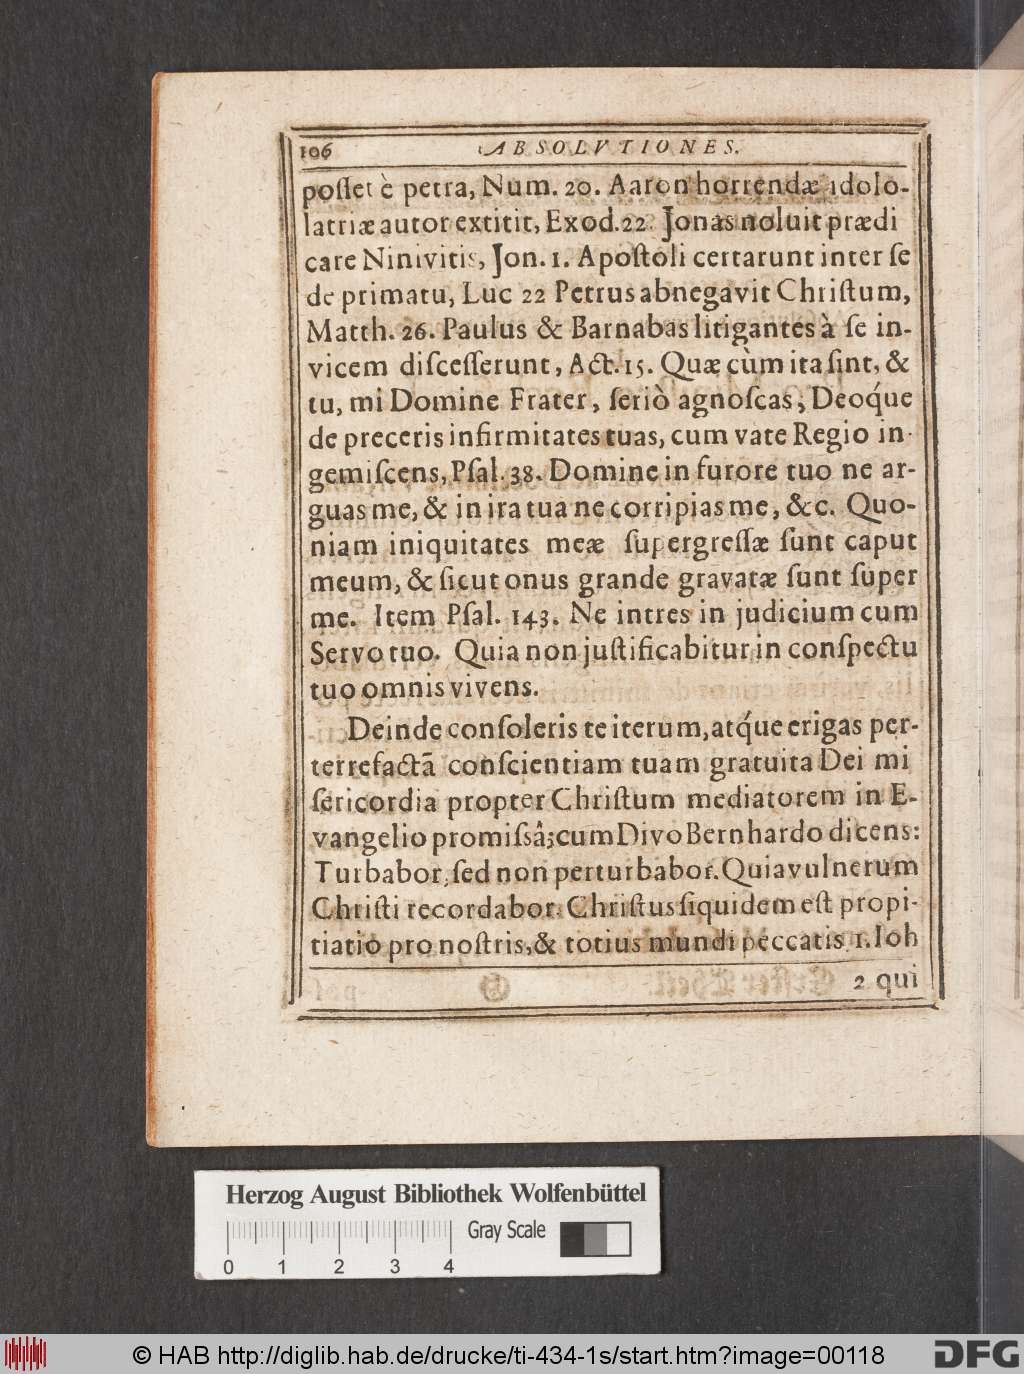 106
ABSOLVTIONES.
poſſet è petra, Num. 20. Aaron horrendæ idolo-
latriæ autor extitit, Exod. 22. Jonas noluit prædi
care Ninivitis, Jon. 1. Apoſtoli certarunt inter ſe
de primatu, Luc 22 Petrus abnegavit Chriſtum,
Matth. 26. Paulus & Barnabas litigantes à ſe in-
vicem diſceſſerunt, Act. 15. Quæ cùm ita ſint, &
tu, mi Domine Frater, ſeriò agnoſcas, Deoq́ue
de preceris infirmitates tuas, cum vate Regio in-
gemiſcens, Pſal. 38. Domine in furore tuo ne ar-
guas me, & in ira tua ne corripias me, &c. Quo-
niam iniquitates meæ ſupergreſſæ ſunt caput
meum, & ſicut onus grande gravatæ ſunt ſuper
me. Item Pſal. 143. Ne intres in judicium cum
Servo tuo. Quia non juſtificabitur in conſpectu
tuo omnis vivens.
Deinde conſoleris te iterum, atq́ue erigas per-
terrefactã conſcientiam tuam gratuita Dei mi
ſericordia propter Chriſtum mediatorem in E-
vangelio promiſsâ; cum Divo Bernhardo dicens:
Turbabor, ſed non perturbabor. Quia vulnerum
Chriſti recordabor. Chriſtus ſiquidem eſt propi-
tiatio pro noſtris, & totius mundi peccatis 1. Ioh
2 qui
Herzog August Bibliothek Wolfenbüttel
Gray Scale
0 1 2 3 4
© HAB http://diglib.hab.de/drucke/ti-434-1s/start.htm?image=00118
DFG